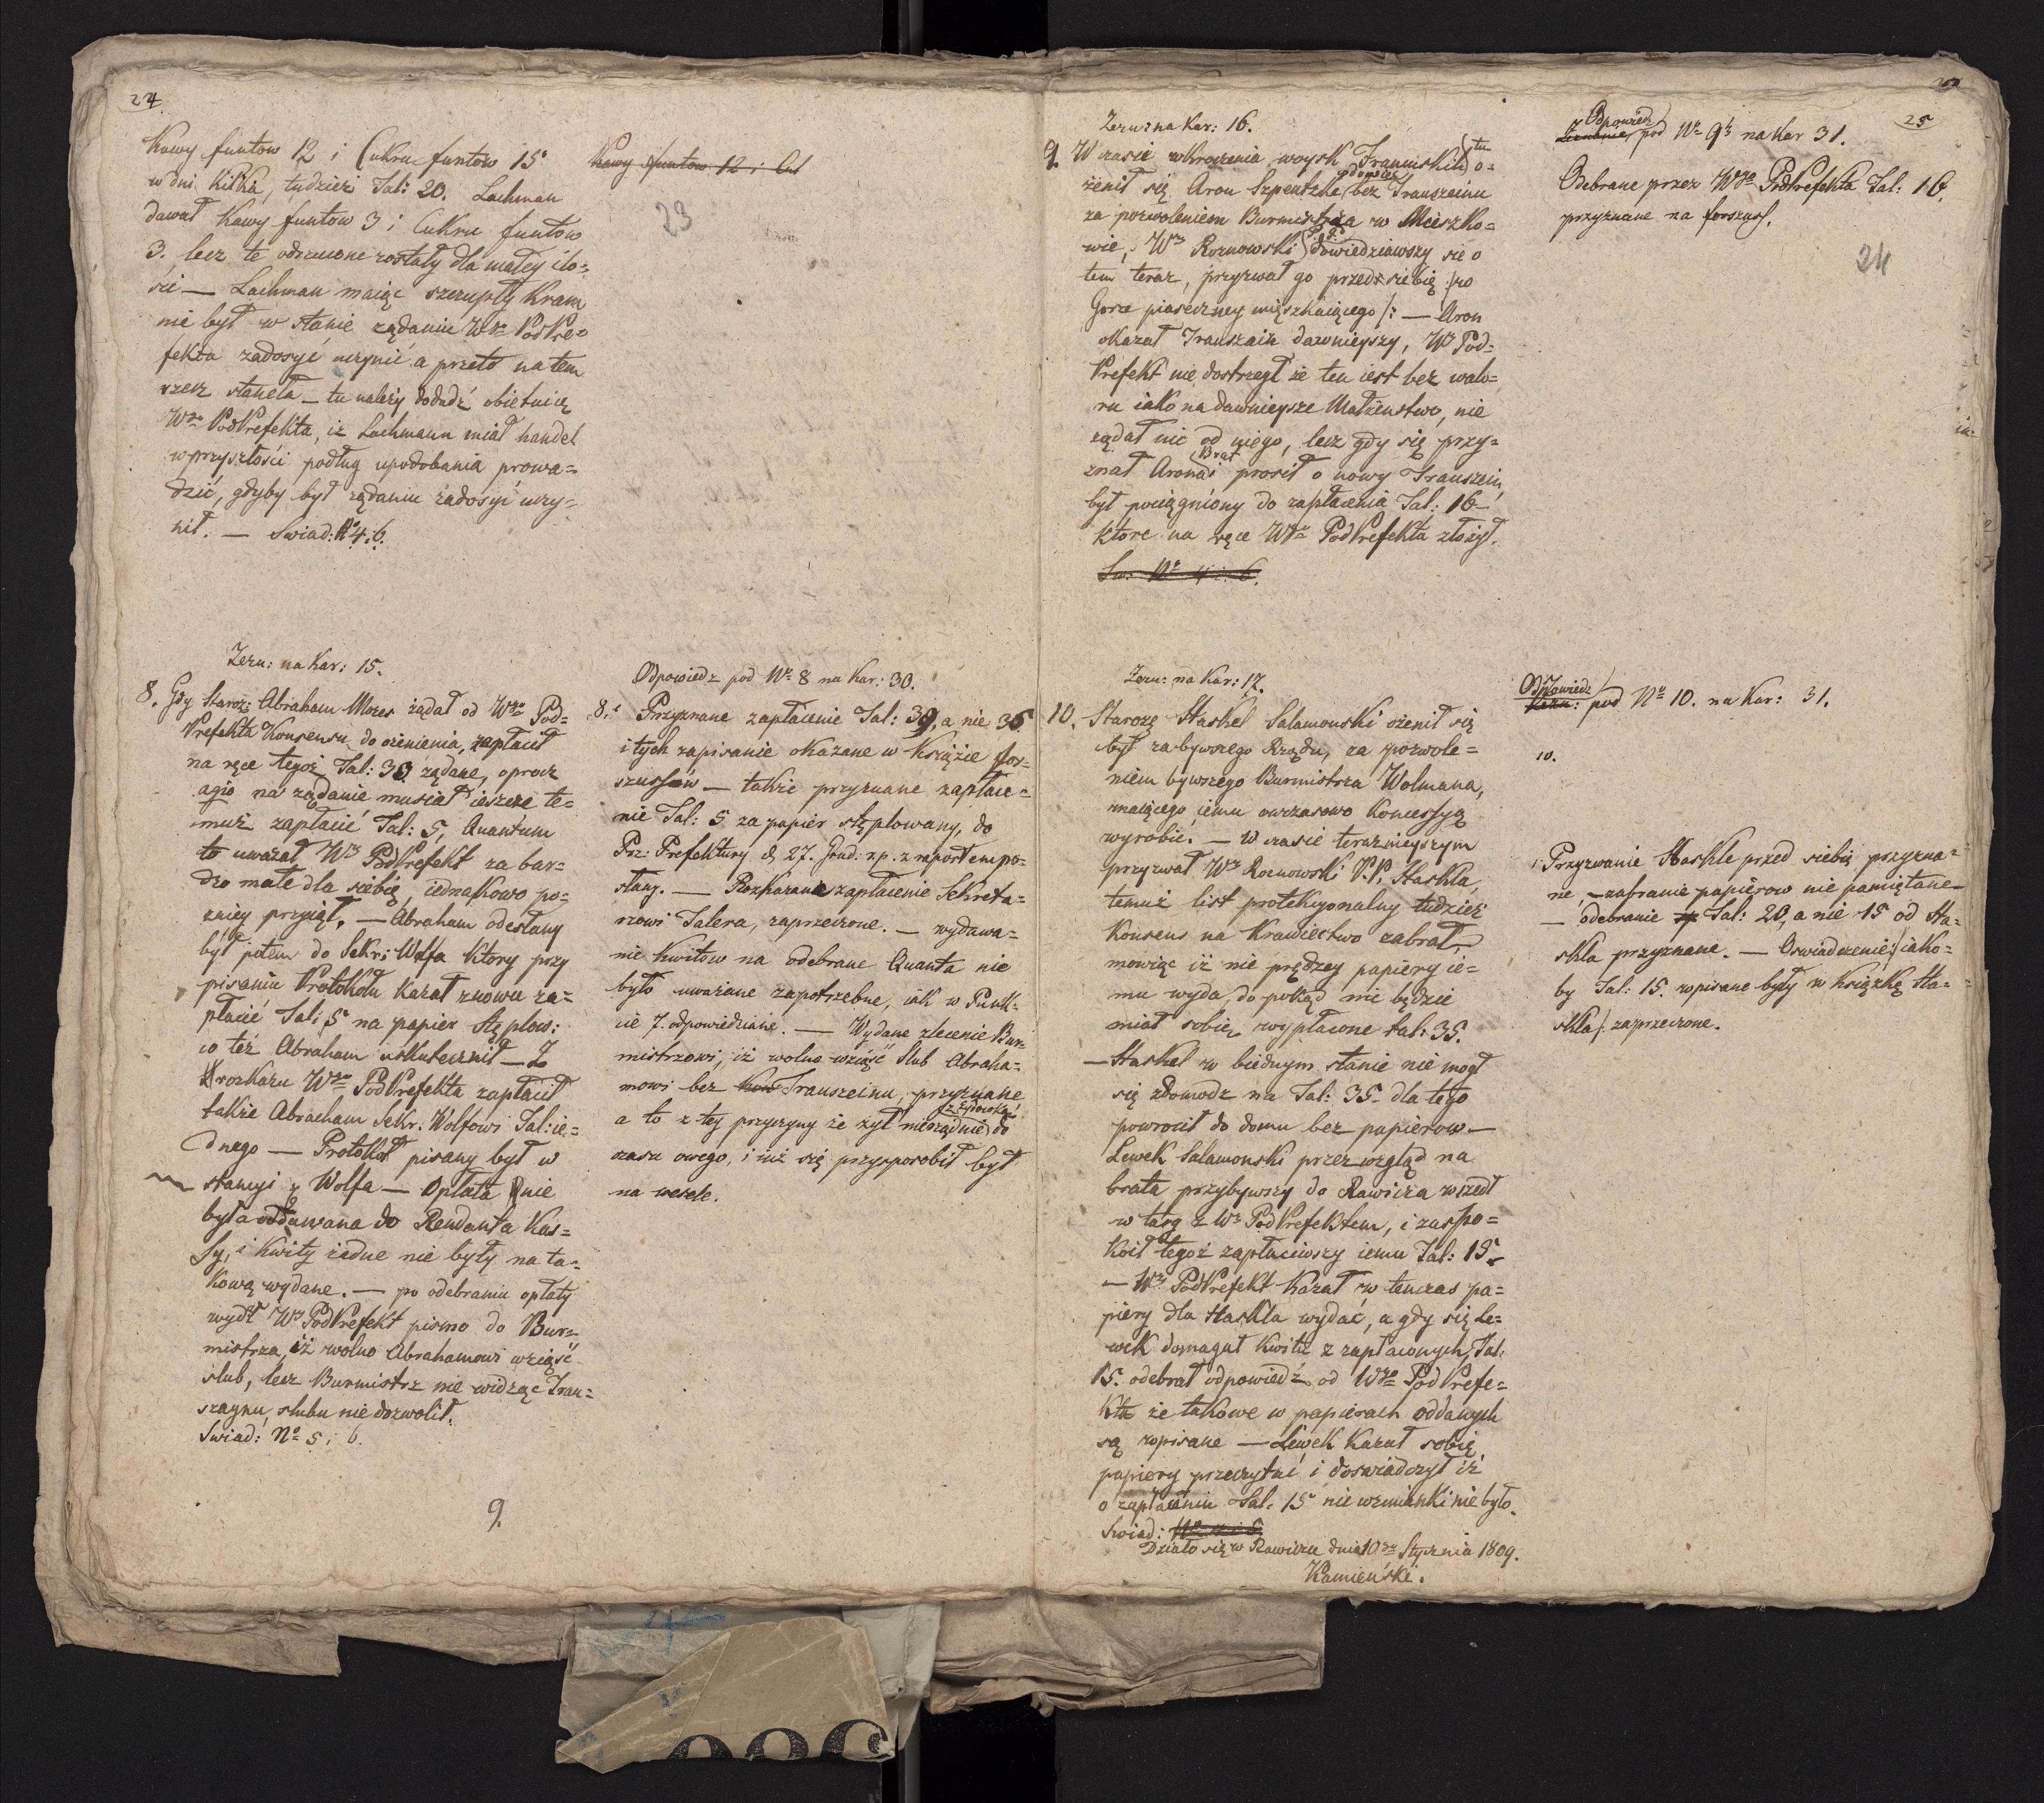 24
Kawy funtow 12 i Cukru funtow 15
w dni kilka, tudzież Tal: 20. Lachman
dawał Kawy funtow 3 i Cukru funtow
3. lecz te odrzucone zostały dla małey ilo=
sci — Lachman maiąc szczupły Kram
nie był w stanie rządaniu Wgo PodPre=
fekta zadosyć uczynić a przeto na tem
rzecz staneła — tu należy dodadź obietnicę
Wgo PodPrefekta, iż Lachmann miał handel
w przyszłości podług upodobania prowa=
dzić, gdyby był rządaniu zadosyć uczy=
nił. — Swiad: No 4. 6.
Kawy funtow 12 i Cu
23
Zezn: na Kar: 15.
8. Gdy Staroz: Abraham Mozes żądał od Wgo Pod=
Prefekta Konsensu do ożenienia, zapłacił
na ręce tegoż Tal: 30 żądane, oprocz
agio na żądanie musiał ieszcze te=
muż zapłacić Tal: 5, Quantum
to uważał Wy PodPrefekt za bar=
dzo małe dla siebie, iednakowo po=
zniey przyiął. — Abraham odesłany
był potem do Sekr: Wolfa ktory przy
pisaniu Protokułu kazał znowu za=
płacić Tal: 5 na papier Stęplow:
co też Abraham uskutecznił — Z
rozkazu Wgo PodPrefekta zapłacił
także Abracham Sekr. Wolfowi Tal: ie=
dnego — Protokół pisany był w
stancyi Wolfa — Opłata nie
była oddawana do Rendanta Kas=
sy, i Kwity żadne nie były na ta=
kową wydane. — po odebraniu opłaty
wydł Wy PodPrefekt pismo do Bur=
mistrza, iż wolno Abrahamowi wziąść
slub, lecz Burmistrz nie widząc Trau=
szaynu, slubu nie dozwolił.
Swiad: No 5 i 6.
9.
Odpowiedz pod No 8 na Kar: 30.
8. Przyznane zapłacenie Tal: 39, a nie 36
i tych zapisanie okazane w Książce for=
szussów — także przyznane zapłace=
nie Tal: 5 za papier stęplowany, do
Prz: Prefektury d. 27. Grud: rp. z raportem po=
słany. — Rozkazane zapłacenie Sekreta=
rzowi Talera, zaprzeczone. — wydawa=
nie Kwitow na odebrane Quanta nie
było uważane za potrzebne, iak w Punk=
cie 7. odpowiedziane. — Wydane zlecenie Bur=
mistrzowi, iż wolno wziąść Slub Abraha=
mowi bez Kon Trauszeinu, przyznane
a to z tey przyczyny że żył nierządnie z Żydowką do
czasu owego, i iuż się przysposobił był
na wesele.
Zezna na Kar: 16.
9. W czasie wkroczenia woysk Francuskich tu o=
żenił się Aron Szpentzke dawniey bez Trauszeinu
za pozwoleniem Burmistrza w Mieszko=
wie, Wy Roznowski P.P. dowiedziawszy się o
tem teraz, przyzwał go przed siebię /: w
Gorze piaseczney mięszkaiącego /: — Aron
okazał Trauszain dawnieyszy, Wy Pod=
Prefekt nie dostrzegł że ten iest bez walo=
ru iako na dawnieysze Małżenstwo, nie
rządał nic od niego, lecz gdy się przy=
znał Arona Brat i prosił o nowy Trauszein,
był pociągniony do zapłacenia Tal: 16
ktore na ręce Wgo PodPrefekta złożył.
Sw: No 4 i 6.
Zezn: na Kar: 17.
10. Starozę Haskel Salamonski ożenił się
był za bywszego Rządu, za pozwole=
niem bywszego Burmistrza Wolmana,
maiącego iemu owczasowo Koncessyą
wyrobic. — W czasie teraznieyszym
przyzwał Wy Roznowski P.P. Haskla,
temuż list protekcyonalny tudzież
Konsens na Krawiectwo zabrał,
mowiąc iż nie prędzey papiery ie=
mu wyda, do pokąd nie będzie
miał sobie wypłacone tal: 35.
— Haskel w biednym stanie nie mogł
się zdomodz na Tal: 35. dla tego
powrocił do domu bez papierow —
Lewek Salamonski przez wzgląd na
brata, przybywszy do Rawicza wszedł
w targ z Wy PodPrefektem, i zaspo=
koił tegoż zapłaciwszy iemu Tal: 15.
— Wy PodPrefekt kazał w tenczas pa=
piery dla Haskla wydać, a gdy się Le=
wek domagał kwitu z zapłaconych Tal:
15. odebrał odpowiedź od Wgo PodPrefe=
kta że takowe w papierach oddanych
są wpisane — Lewek kazał sobię
papiery przeczytać i doswiadczył iż
o zapłaceniu Tal: 15 nie wzmianki nie było.
Swiad:
Działo się w Rawiczu dnia 10go Stycznia 1809.
Kamieński.
25
Odpowiedz
pod No 9ty na Kar 31.
Odebrane przez Wgo PodPrefekta Tal: 16.
przyznane za forszuss.
24
Odpowiedz
Zezn: pod No 10. na Kar: 31.
10.
Przyzwanie Haskle przed siebie przyzna=
ne, — zabranie papierow nie pamiętane —
— odebranie Tal: 20, a nie 15 od Ha=
skla przyznane. — Oswiadczenie /: iako=
by Tal: 15. wpisane były w Książkę Ha=
skla /: zaprzeczone.